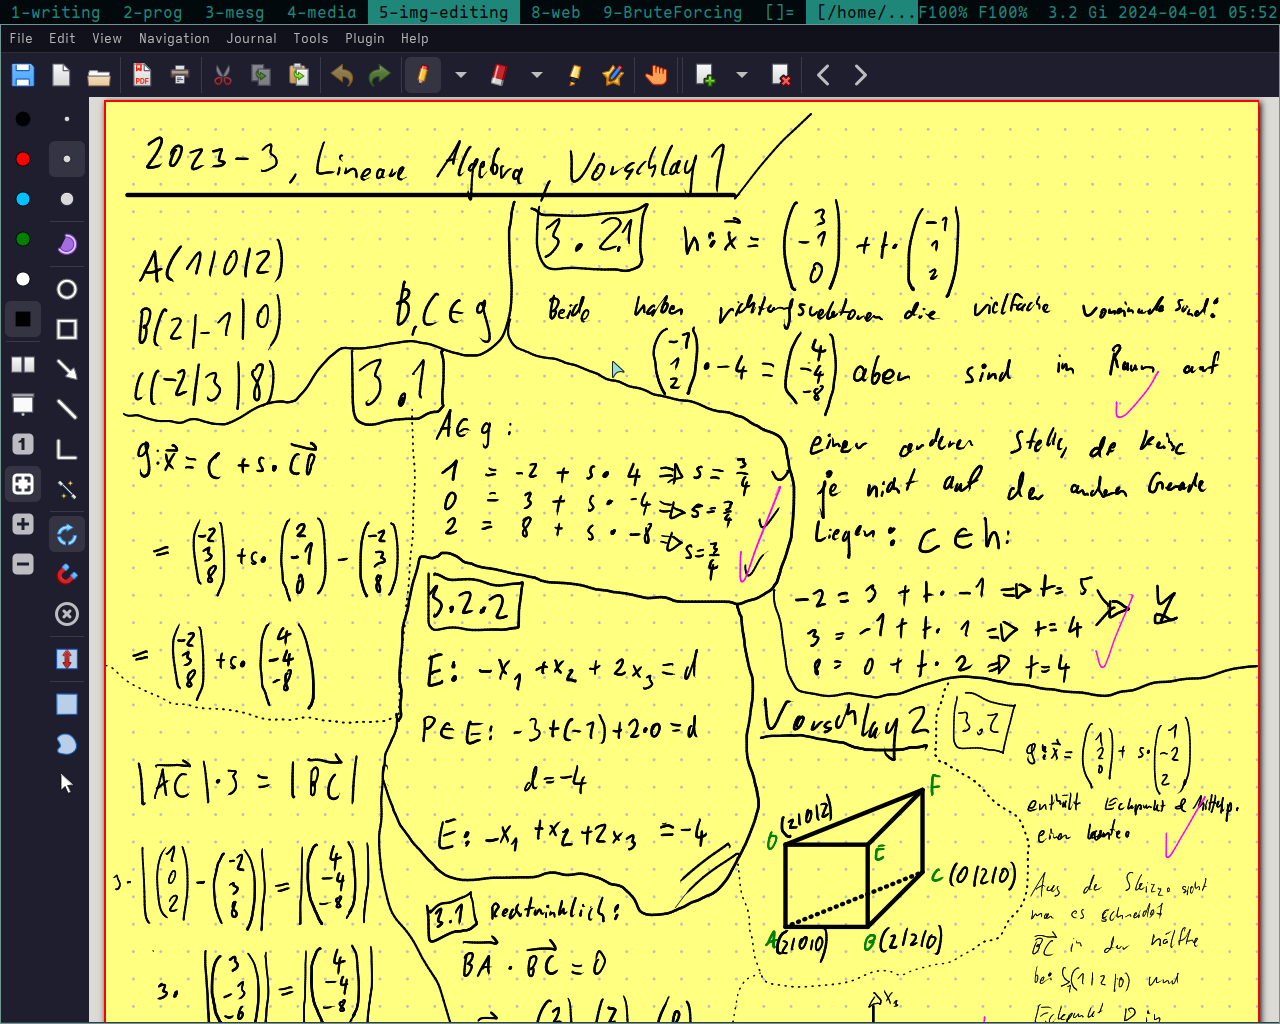 1-writing 2-prog 3-mesg 4-media 5-img-editing 8-web 9-BruteForcing []= [/home/... F100% F100% 3.2 Gi 2024-04-01 05:52
File Edit View Navigation Journal Tools Plugin Help
2023-3, Lineare Algebra, Vorschlag 1
A(1|0|2)
B(2|-1|0)
C(-2|3|8)
B, C ∈ g
3.1
g: x⃗ = C + s · CB⃗
= (-2 3 8) + s · (2 -1 0) - (-2 3 8)
= (-2 3 8) + s · (4 -4 -8)
A ∈ g :
1 = -2 + s · 4 ⇒ s = 3/4 ✓
0 = 3 + s · -4 ⇒ s = 3/4 ✓
2 = 8 + s · -8 ⇒ s = 3/4 ✓
|AC⃗| · 3 = |BC⃗|
3 · |(1 0 2) - (-2 3 8)| = |(4 -4 -8)|
3 · |(3 -3 -6)| = |(4 -4 -8)|
3.2.1
h: x⃗ = (3 -1 0) + t · (-1 1 2)
Beide haben richtungsvektoren die vielfache voneinander sind:
(-1 1 2) · -4 = (4 -4 -8) aber sind im Raum auf
einer anderen Stelle, da keine
je nicht auf der anderen Gerade
Liegen: C ∈ h:
-2 = 3 + t · -1 ⇒ t = 5
3 = -1 + t · 1 ⇒ t = 4
8 = 0 + t · 2 ⇒ t = 4
3.2.2
E: -x₁ + x₂ + 2x₃ = d
P ∈ E: -3 + (-1) + 2·0 = d
d = -4
E: -x₁ + x₂ + 2x₃ = -4
Vorschlag 2
3.1 Rechtwinklich:
BA⃗ · BC⃗ = 0
D (2|0|2)
F
E
C (0|2|0)
A (2|0|0)
B (2|2|0)
x₃
3.2
g: x⃗ = (1 2 0) + s · (1 -2 2)
enthält Eckpunkt & Mittelp.
einer kante.
Aus de Skizze sieht
man es schneidet
BC⃗ in der hälfte
bei S₁(1|2|0) und
Eckpunkt D in